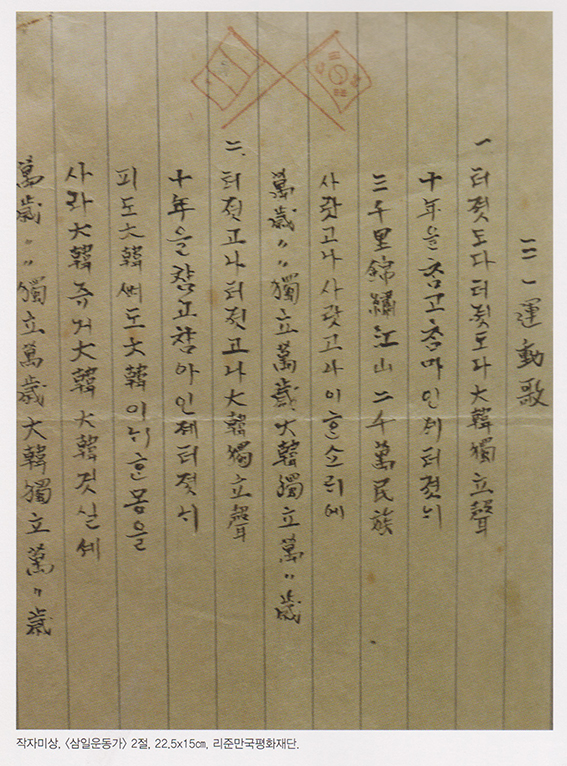 三一運動歌
一 터젓도다 터젓도다 大韓獨立聲
十年을 참고 참마 인제 터졋늬
三千里錦繡江山 二千萬民族
사랏고나 사랏고나 이 한 소래에
萬歲〃〃獨立萬歲 大韓獨立萬〃歲
二. 터젓고나 터젓고나 大韓獨立聲
十年을 참고 참아 인제 터젓늬
피도 大韓 뼈도 大韓 이늬 한 몸을
사라 大韓 쥬거 大韓 大韓 것실세
萬歲〃〃獨立萬歲 大韓獨立萬〃歲
작자미상, 〈삼일운동가〉 2절, 22.5x15㎝, 리준만국평화재단.